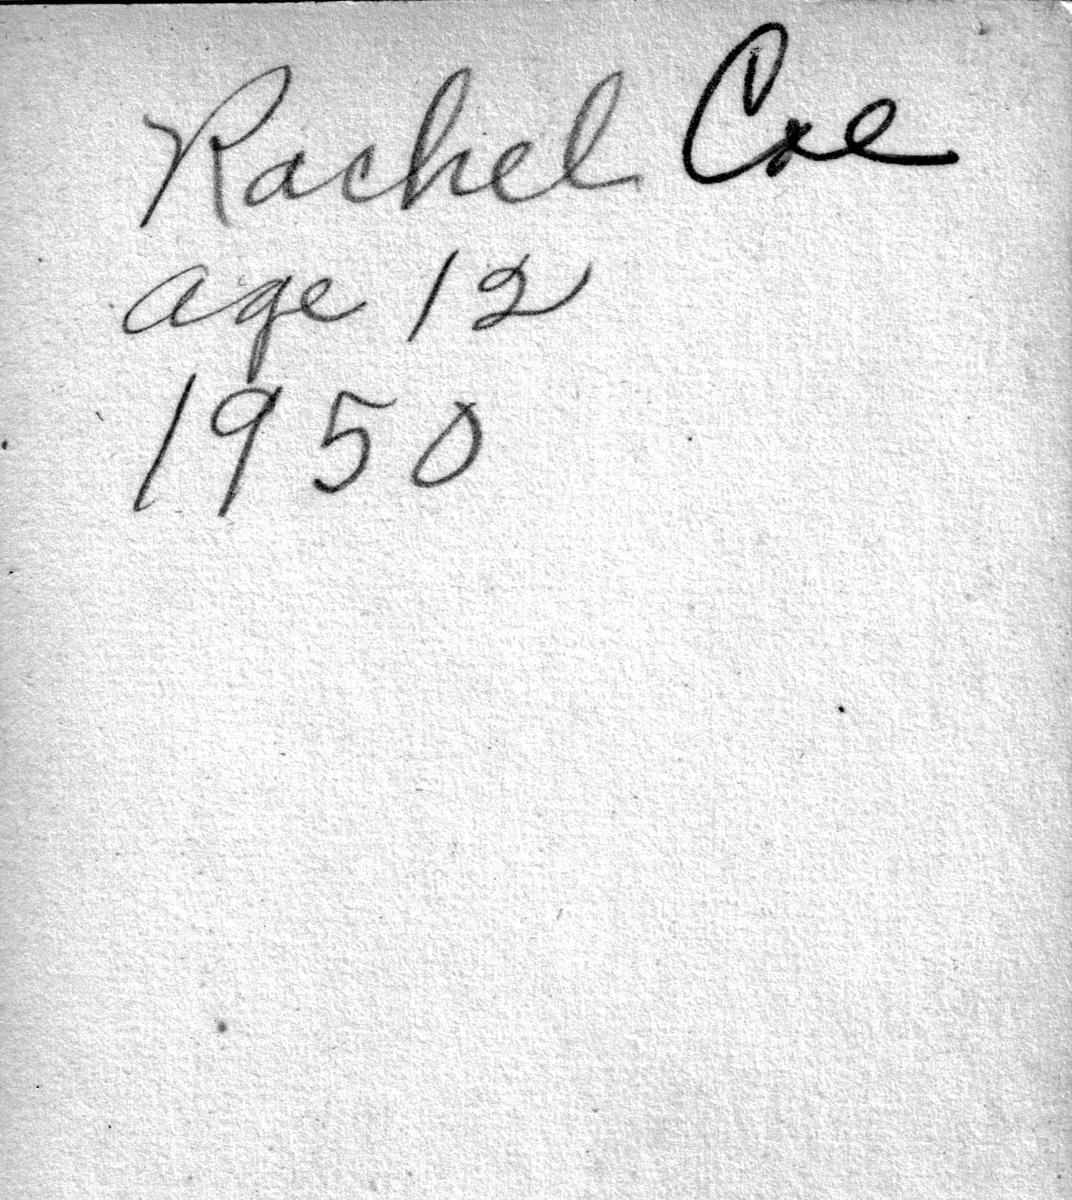 Rachel Coe
age 12
1950